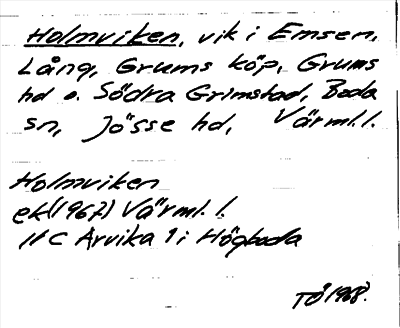 Holmviken, vik i Emsen,
Lång, Grums köp, Grums
hd o. Södra Grimstad, Boda
sn, Jösse hd, Värml. l.
Holmviken
ek (1967) Värml. l.
11 C Arvika 1 i Högboda
TÖ 1968.